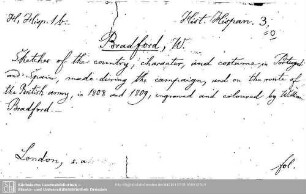 H, Hisp. 1b.
Hist. Hispan. 3,
60
Bradford, W.
Sketches of the country, character, and costume in Portugal
and Spain, made during the campaign, and on the route of
the British army, in 1808 and 1809, engraved and coloured by William
Bradford.
London, s. a.
fol.